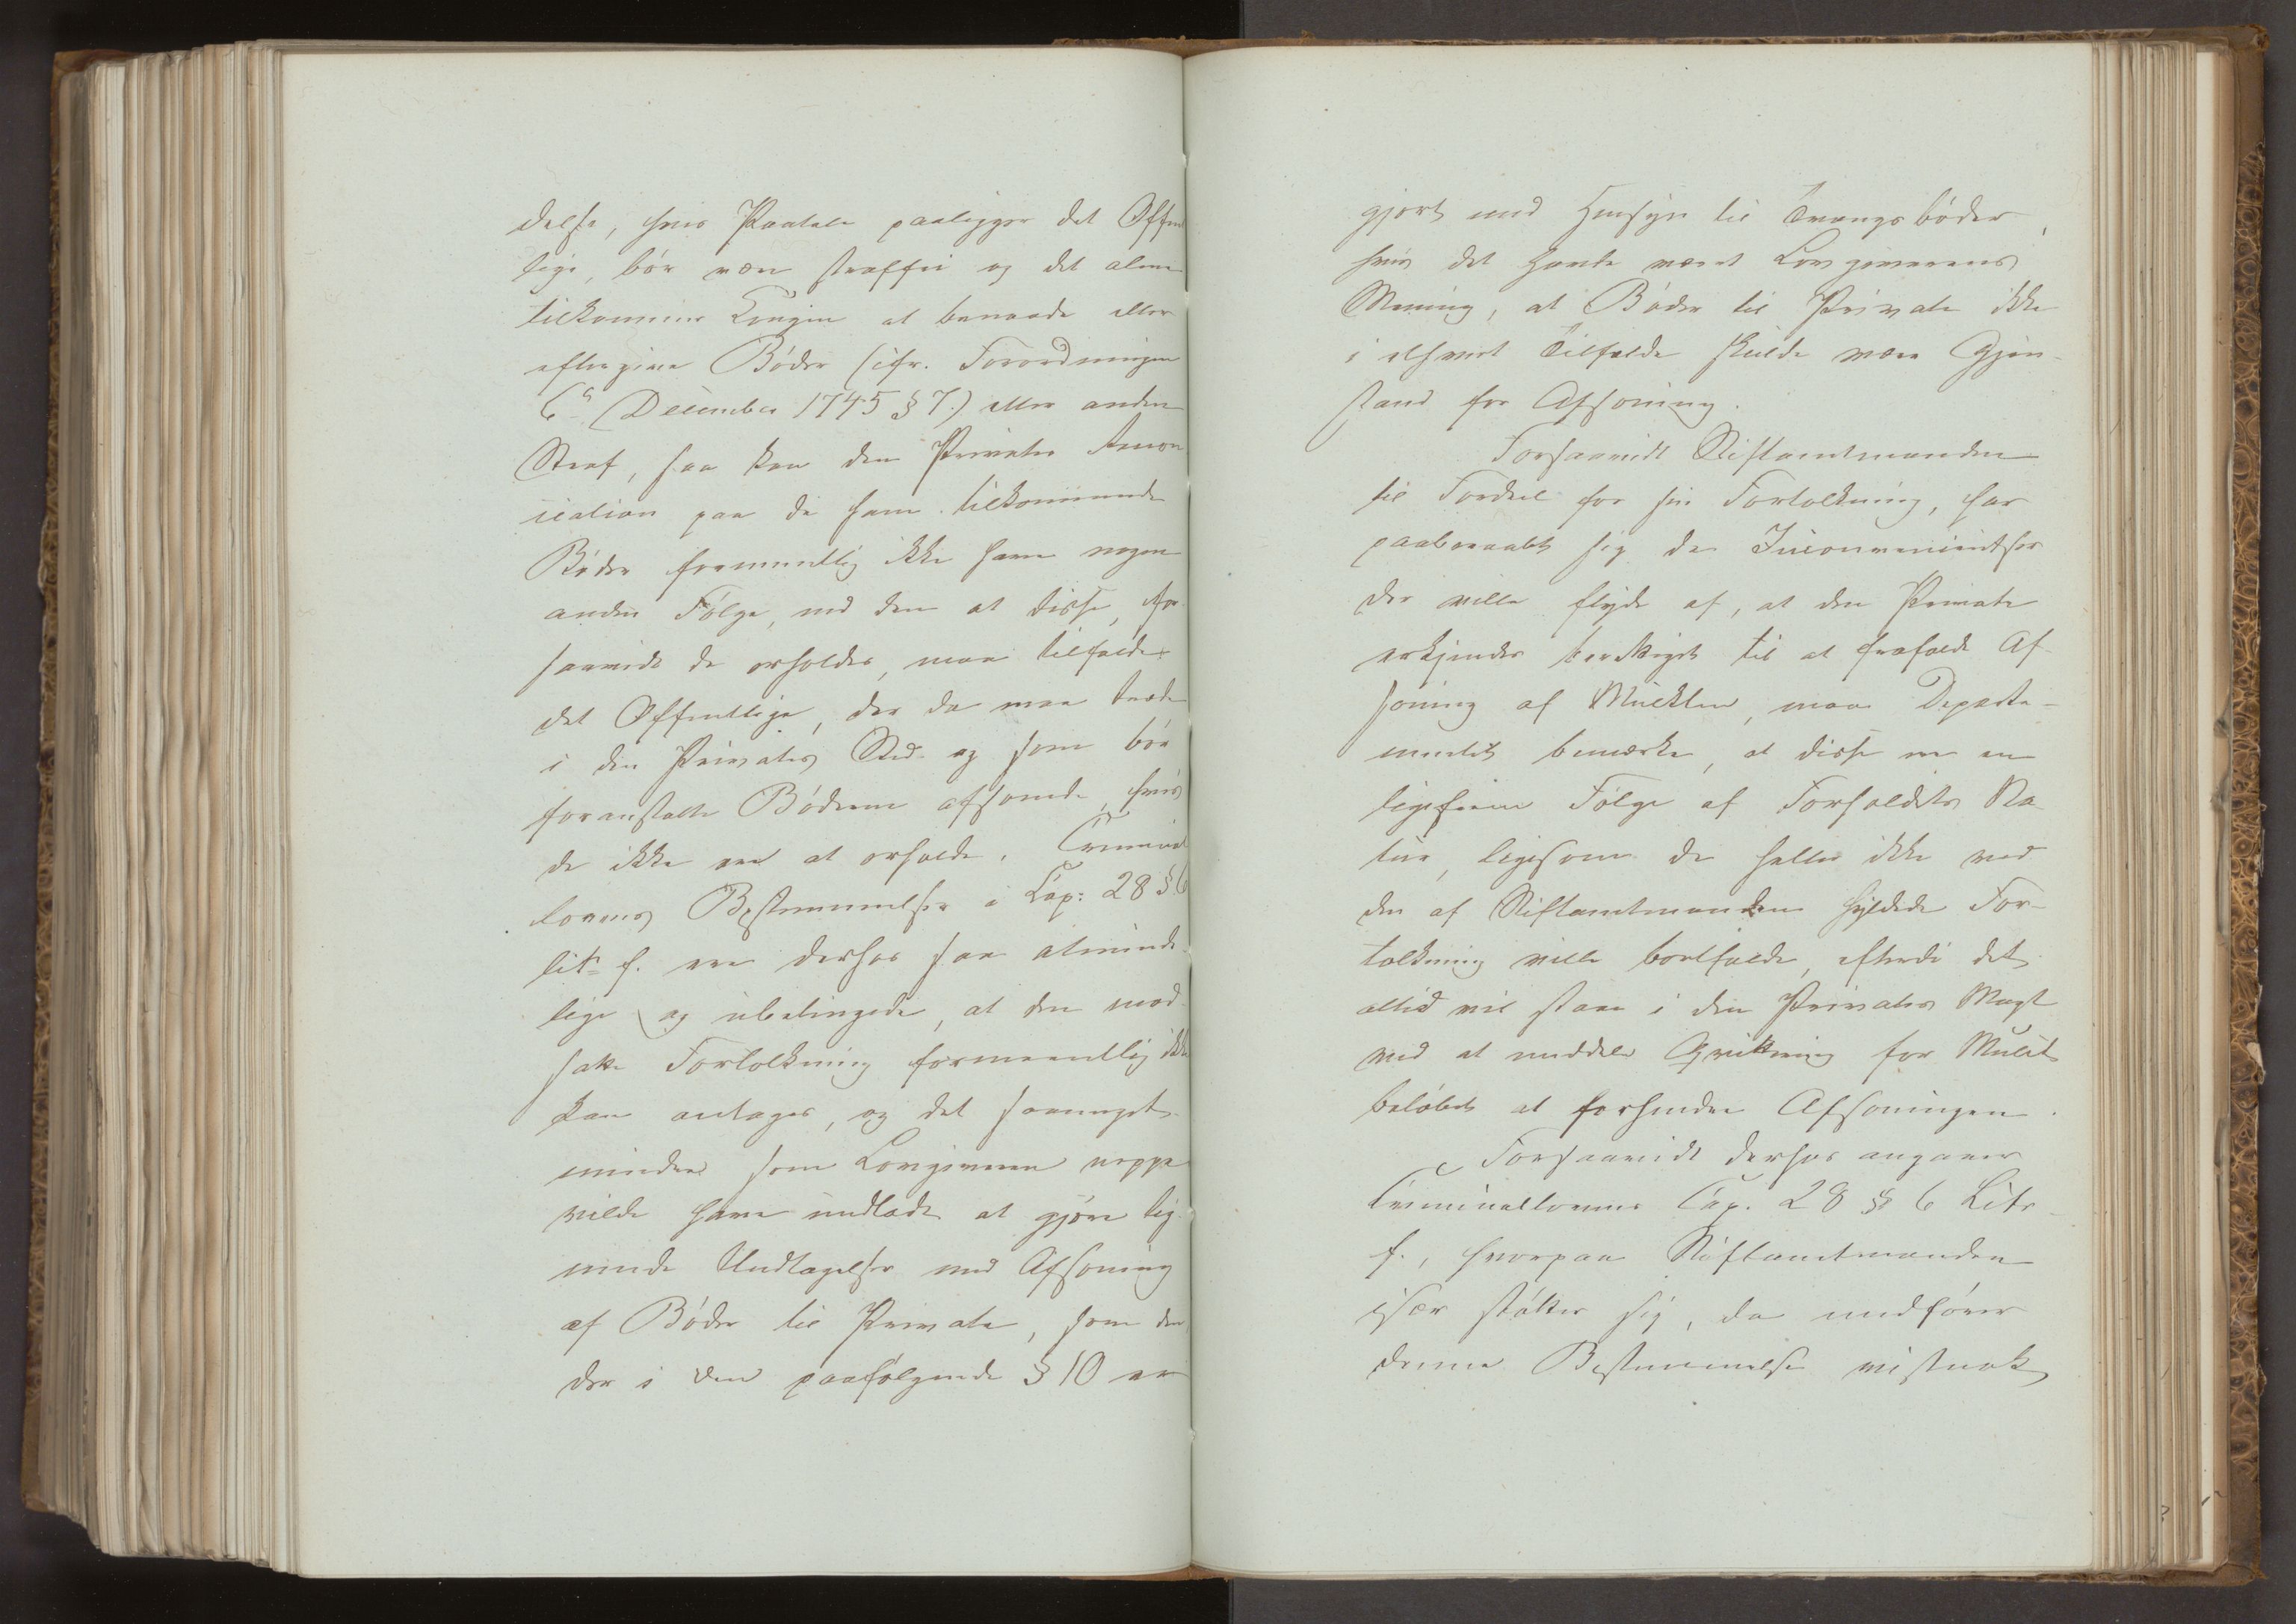 delse, hvis Paatale paaligger det Offent
lige, bør være straffri og det alene
tilkommer Kongen at benaade eller
eftergive Bøder (icfr. Forordningen
6te December 1745 § 7.) eller anden
Straf, saa kan den Privates Renon
ciation paa de ham tilkommende
Bøder formentlig ikke have nogen
anden Følge, end den at disse, for
saavidt de erholdes, maa tilfalde
det Offentlige, der da maa træde
i den Privates Sted og som bør
foranstalte Bøderne afsonede, hvis
de ikke ere at erholde. Criminal
lovens Bestemmelser i Cap: 28 § 6
litr f. ere derhos saa alminde
lige og ubetingede, at den mod
satte Fortolkning formeentlig ikke
kan antages, og det saameget
mindre som Lovgiveren neppe
vilde have undladt at gjøre lig
nende Undtagelse med Afsoning
af Bøder til Private, som den
der i den paafølgende § 10 er
gjort med Hensyn til Tvangsbøder,
hvis det havde været Lovgiverens
Mening, at Bøder til Private ikke
i ethvert Tilfælde skulde være Gjen-
stand for Afsoning.
Forsaavidt Stiftamtmanden
til Fordeel for sin Fortolkning, har
paaberaabt sig de Inconvenientser
der ville flyde af, at den Private
erkjendes berettiget til at frafalde Af
soning af Mulkten, maa Departe-
mentet bemærke, at disse er en
ligefrem Følge af Forholdets Na
tur, ligesom de heller ikke ved
den af Stiftamtmanden hyldede For-
tolkning ville bortfalde, efterdi det
altid vil staae i den Privates Magt
ved at meddele Qvittering for Mulct
beløbet at forhindre Afsoningen.
Forsaavidt derhos angaaer
Criminallovens Cap. 28 § 6 Litr
f., hvorpaa Stiftamtmanden
især støtter sig, da medfører
denne Bestemmelse vistnok